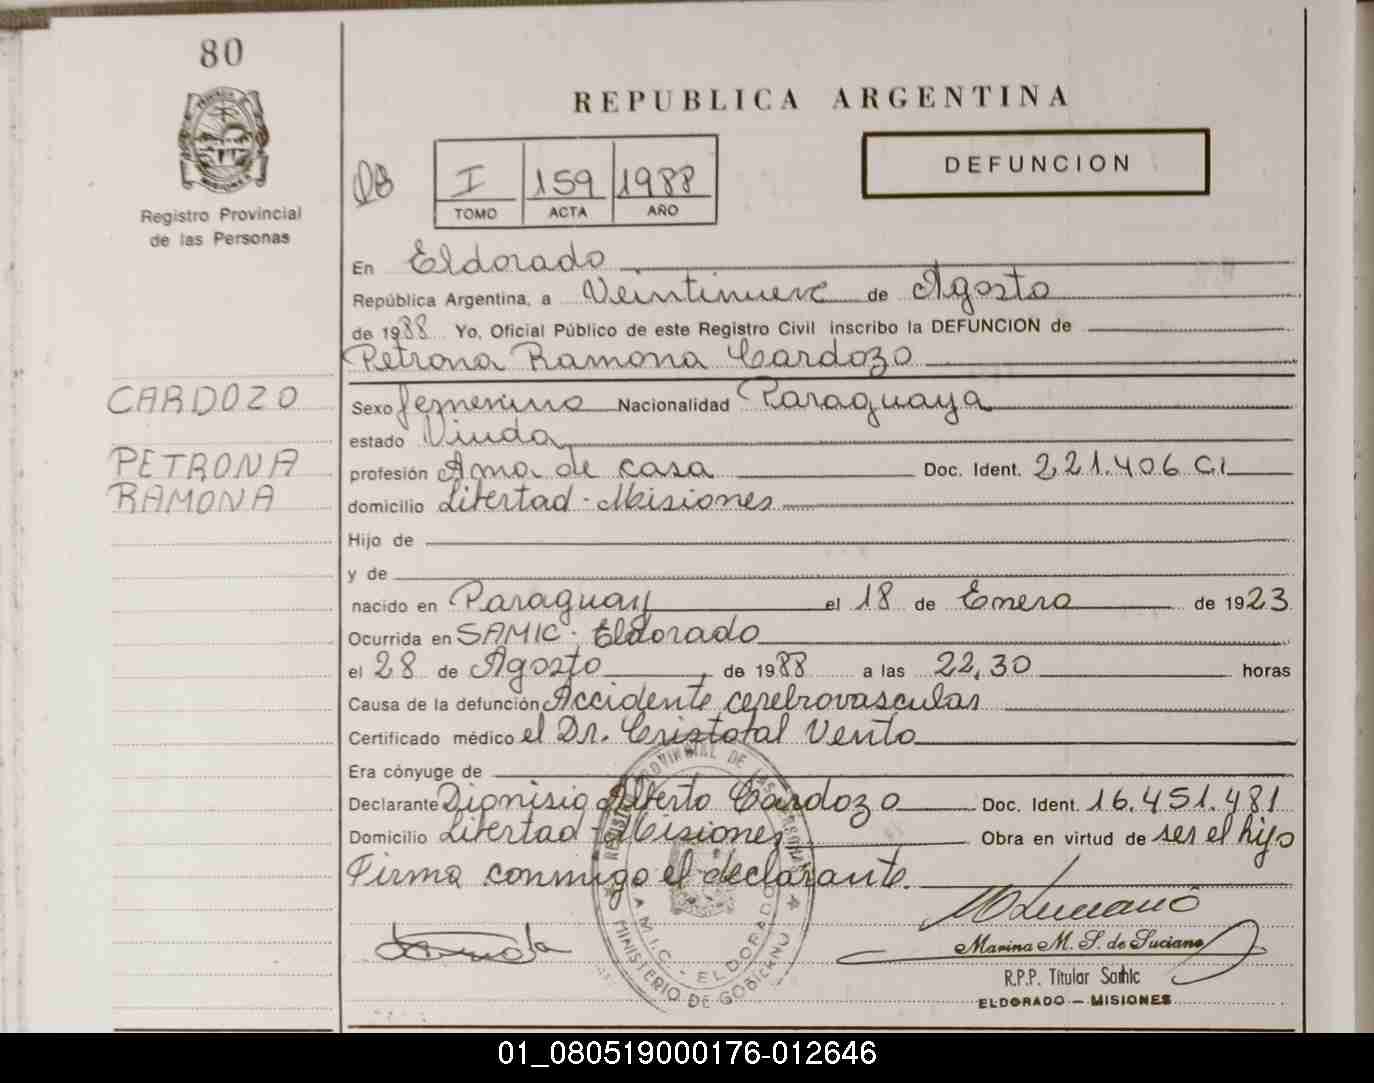 80
Registro Provincial
de las Personas
REPUBLICA ARGENTINA
DEFUNCION
I 159 1988
TOMO ACTA AÑO
En Eldorado
República Argentina, a Veintinueve de Agosto
de 1988 Yo, Oficial Público de este Registro Civil inscribo la DEFUNCION de
Petrona Ramona Cardozo
CARDOZO
PETRONA
RAMONA
Sexo femenino Nacionalidad Paraguaya
estado Viuda
profesión Ama de casa Doc. Ident. 221.406 CI
domicilio Libertad - Misiones
Hijo de
y de
nacido en Paraguay el 18 de Enero de 1923
Ocurrida en SAMIC - Eldorado
el 28 de Agosto de 1988 a las 22,30 horas
Causa de la defunción Accidente cerebrovascular
Certificado médico el Dr. Cristobal Vento
Era cónyuge de
Declarante Dionisio Alberto Cardozo Doc. Ident. 16.451.481
Domicilio Libertad - Misiones Obra en virtud de ser el hijo
Firma conmigo el declarante.
Marina M. S. de Luciano
R.P.P. Titular Samic
ELDORADO - MISIONES
MINISTERIO DE GOBIERNO
ELDORADO
01_080519000176-012646